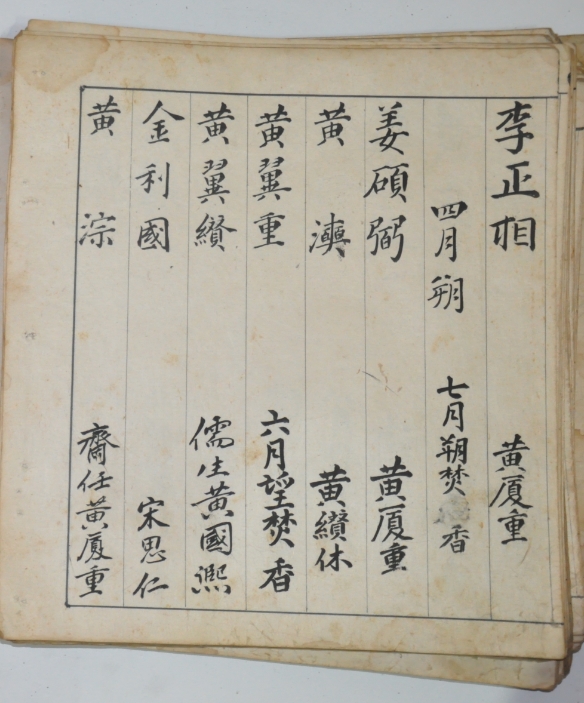 李正相 黄厦重
四月朔 七月朔焚香
姜碩弼 黄厦重
黄㵢 黄纘休
黄翼重 六月望焚香
黄翼纘 儒生黄國熙
金利國 宋思仁
黄淙 齋任黄厦重